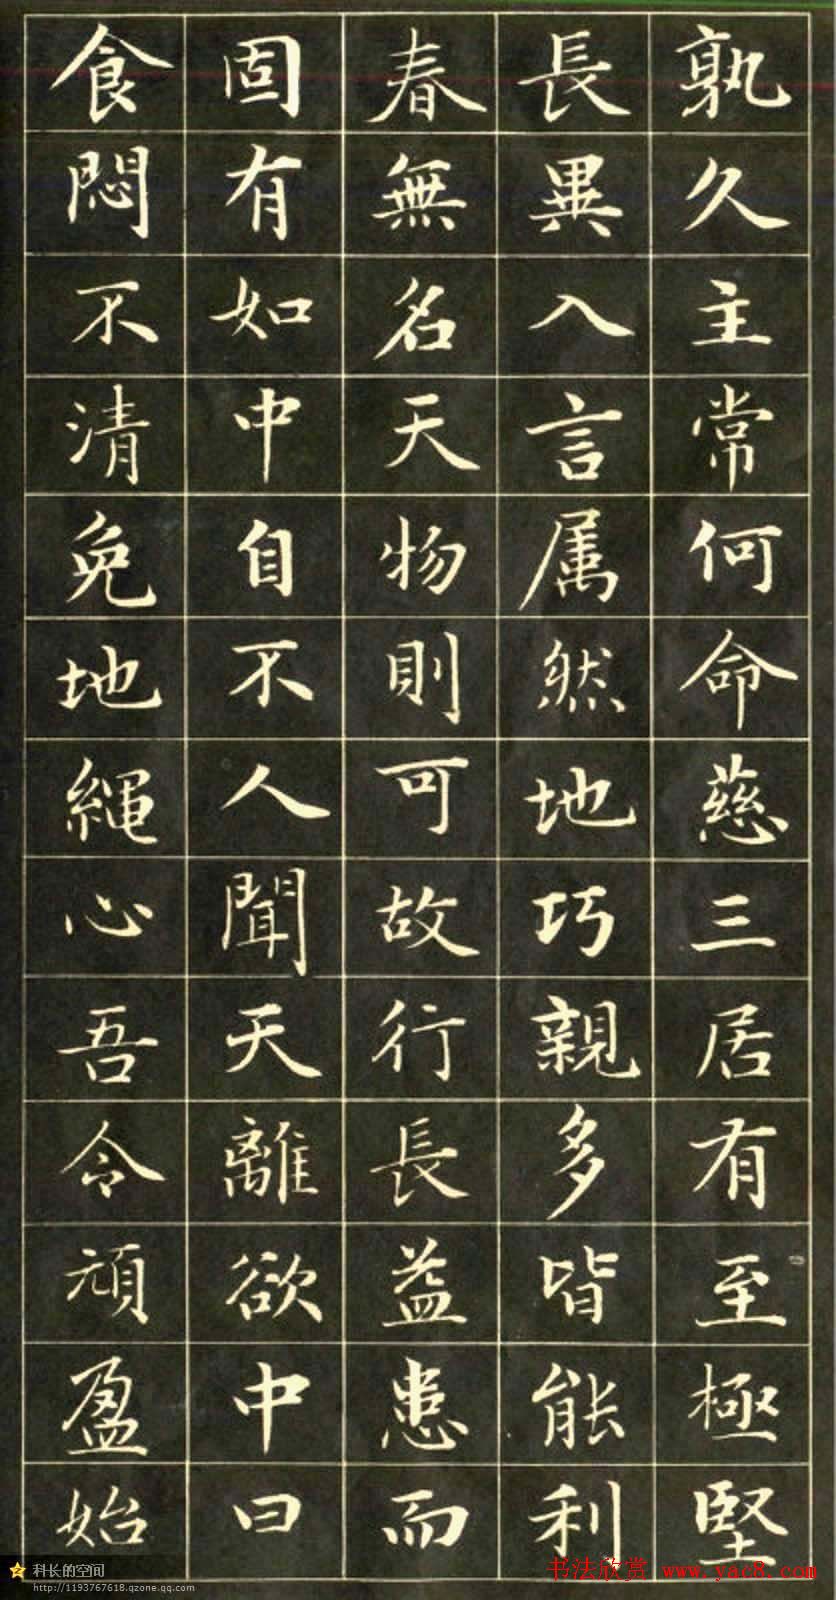 孰久主常何命慈三居有至極堅
長異入言属然地巧親多皆能利
春無名天物則可故行長益患而
固有如中自不人聞天離欲中曰
食悶不清免地繩心吾令頑盈始
科长的空间
http://1193767618.qzone.qq.com
书法欣赏 www.yac8.com